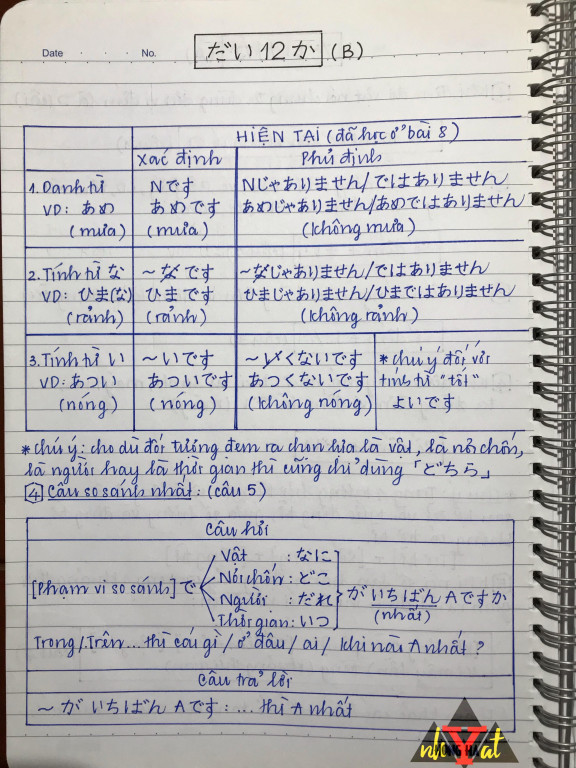 Date No. だい12か (B)
HIỆN TẠI (đã học ở bài 8)
Xác định Phủ định
1. Danh từ Nです Nじゃありません/ではありません
VD: あめ あめです あめじゃありません/あめではありません
(mưa) (mưa) (không mưa)
2. Tính từ な ~なです ~なじゃありません/ではありません
VD: ひま(な) ひまです ひまじゃありません/ひまではありません
(rảnh) (rảnh) (không rảnh)
3. Tính từ い ~いです ~いくないです * chú ý đối với
VD: あつい あついです あつくないです tính từ "tốt"
(nóng) (nóng) (không nóng) よいです
* chú ý: cho dù đối tượng đem ra chọn lựa là vật, là nơi chốn,
là người hay là thời gian thì cũng chỉ dùng「どちら」
4 Câu so sánh nhất: (câu 5)
Câu hỏi
Vật : なに
[Phạm vi so sánh] で Nơi chốn: どこ が いちばん Aですか
Người : だれ (nhất)
Thời gian: いつ
Trong/Trên... thì cái gì / ở đâu / ai / khi nào A nhất ?
Câu trả lời
~ が いちばん Aです: ... thì A nhất